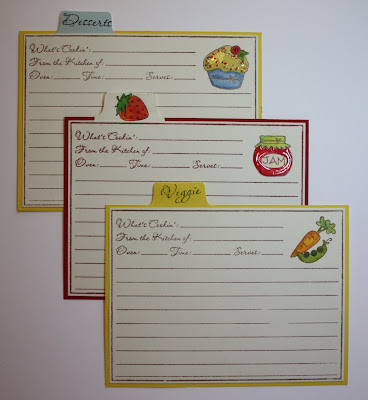 Desserts
What's Cookin':
From the Kitchen of:
Oven: Time: Serves:
What's Cookin':
From the Kitchen of:
Oven: Time: Serves:
JAM
Veggie
What's Cookin':
From the Kitchen of:
Oven: Time: Serves: